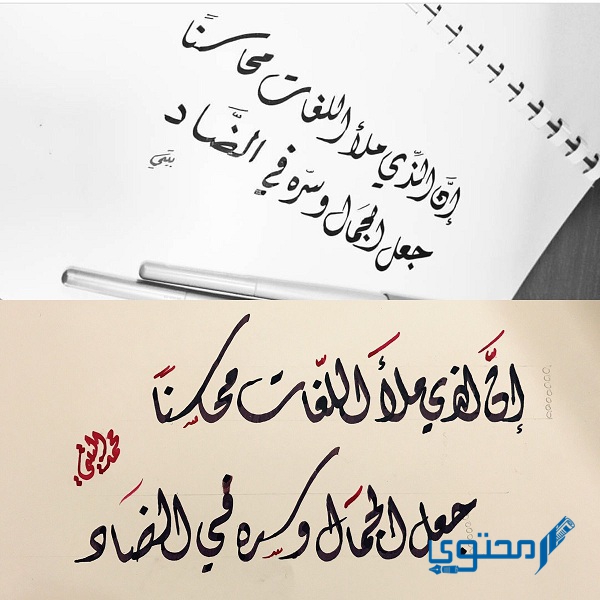 إنَّ الذّي ملأ اللغات محاسنًا
جعل الجمَال وسرّه في الضَّاد
إنَّ الذي ملأَ اللغّات محاسنًا
جعل الجمَال وسرِه في الضَاد
محتوي